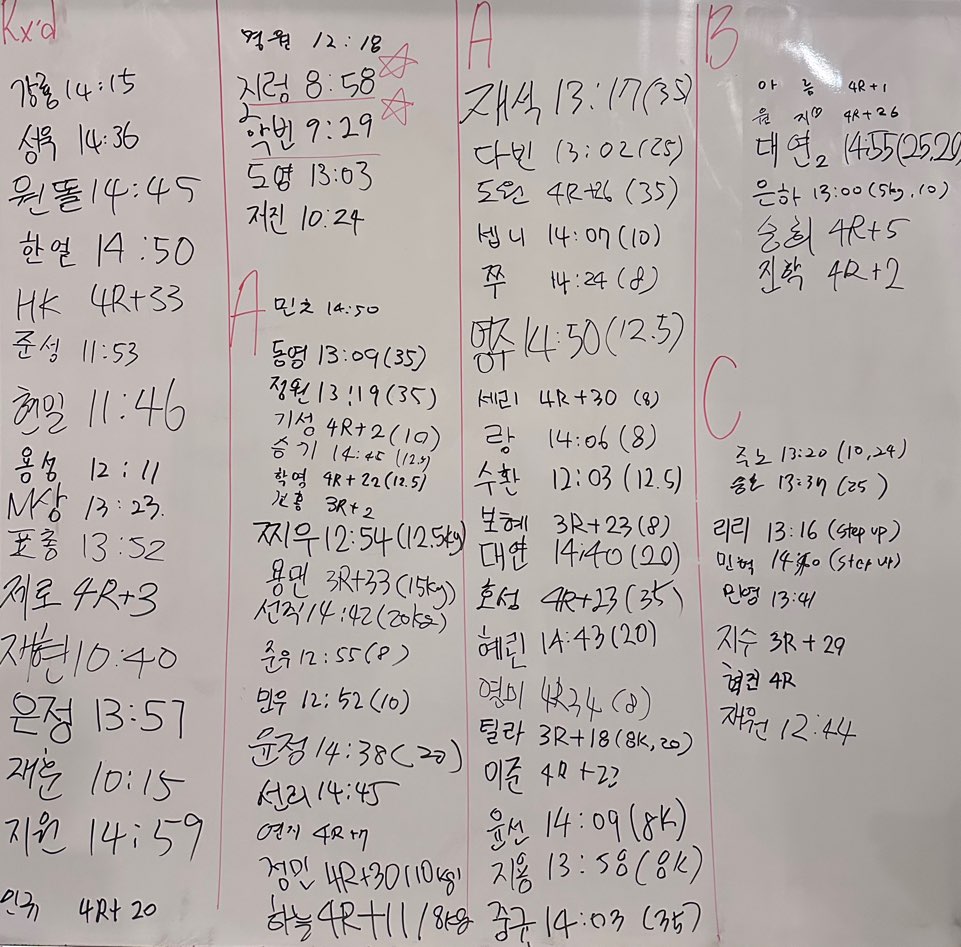 Rx'd
강룡 14:15
성욱 14:36
원똘 14:45
한얼 14:50
HK 4R+33
준성 11:53
현일 11:46
용성 12:11
M상 13:23.
표총 13:52
제로 4R+3
재현 10:40
은정 13:57
재훈 10:15
지원 14:59
4R+20
영원 12:18
지렁 8:58
학번 9:29
도영 13:03
저진 10:24
A
민호 14:50
동영 13:09(35)
정원 13:19(35)
기성 4R+2(10)
승기 14:45 (12.5)
학영 4R+22(12.5)
3R+2
찌우 12:54(12.5kg)
용민 3R+33(15kg)
선직 14:42(20kg)
준우 12:55(8)
민우 12:52(10)
윤정 14:38(20)
선리 14:45
연지 4R+7
정민 4R+30(10kg)
하늘 4R+11
A
재석 13:17(35)
다빈 13:02(25)
도원 4R+26(35)
쎕니 14:07(10)
쭈 14:24(8)
명주 14:50(12.5)
세리 4R+30(8)
랑 14:06(8)
수환 12:03(12.5)
보혜 3R+23(8)
대연 14:40(20)
효성 4R+23(35)
혜린 14:43(20)
영미 4R34(8)
틸라 3R+18(8K,20)
이준 4R+22
윤선 14:09(8K)
지용 13:58(8K)
중규 14:03(35)
B
아름 4R+1
원지 4R+26
대연2 14:55(25,20)
은하 13:00(5kg,10)
승희 4R+5
진학 4R+2
C
주노 13:20(10,24)
승호 13:37(25)
리리 13:16(step up)
민혁 (step up)
민영 13:41
지수 3R+29
협건 4R
재원 12:44